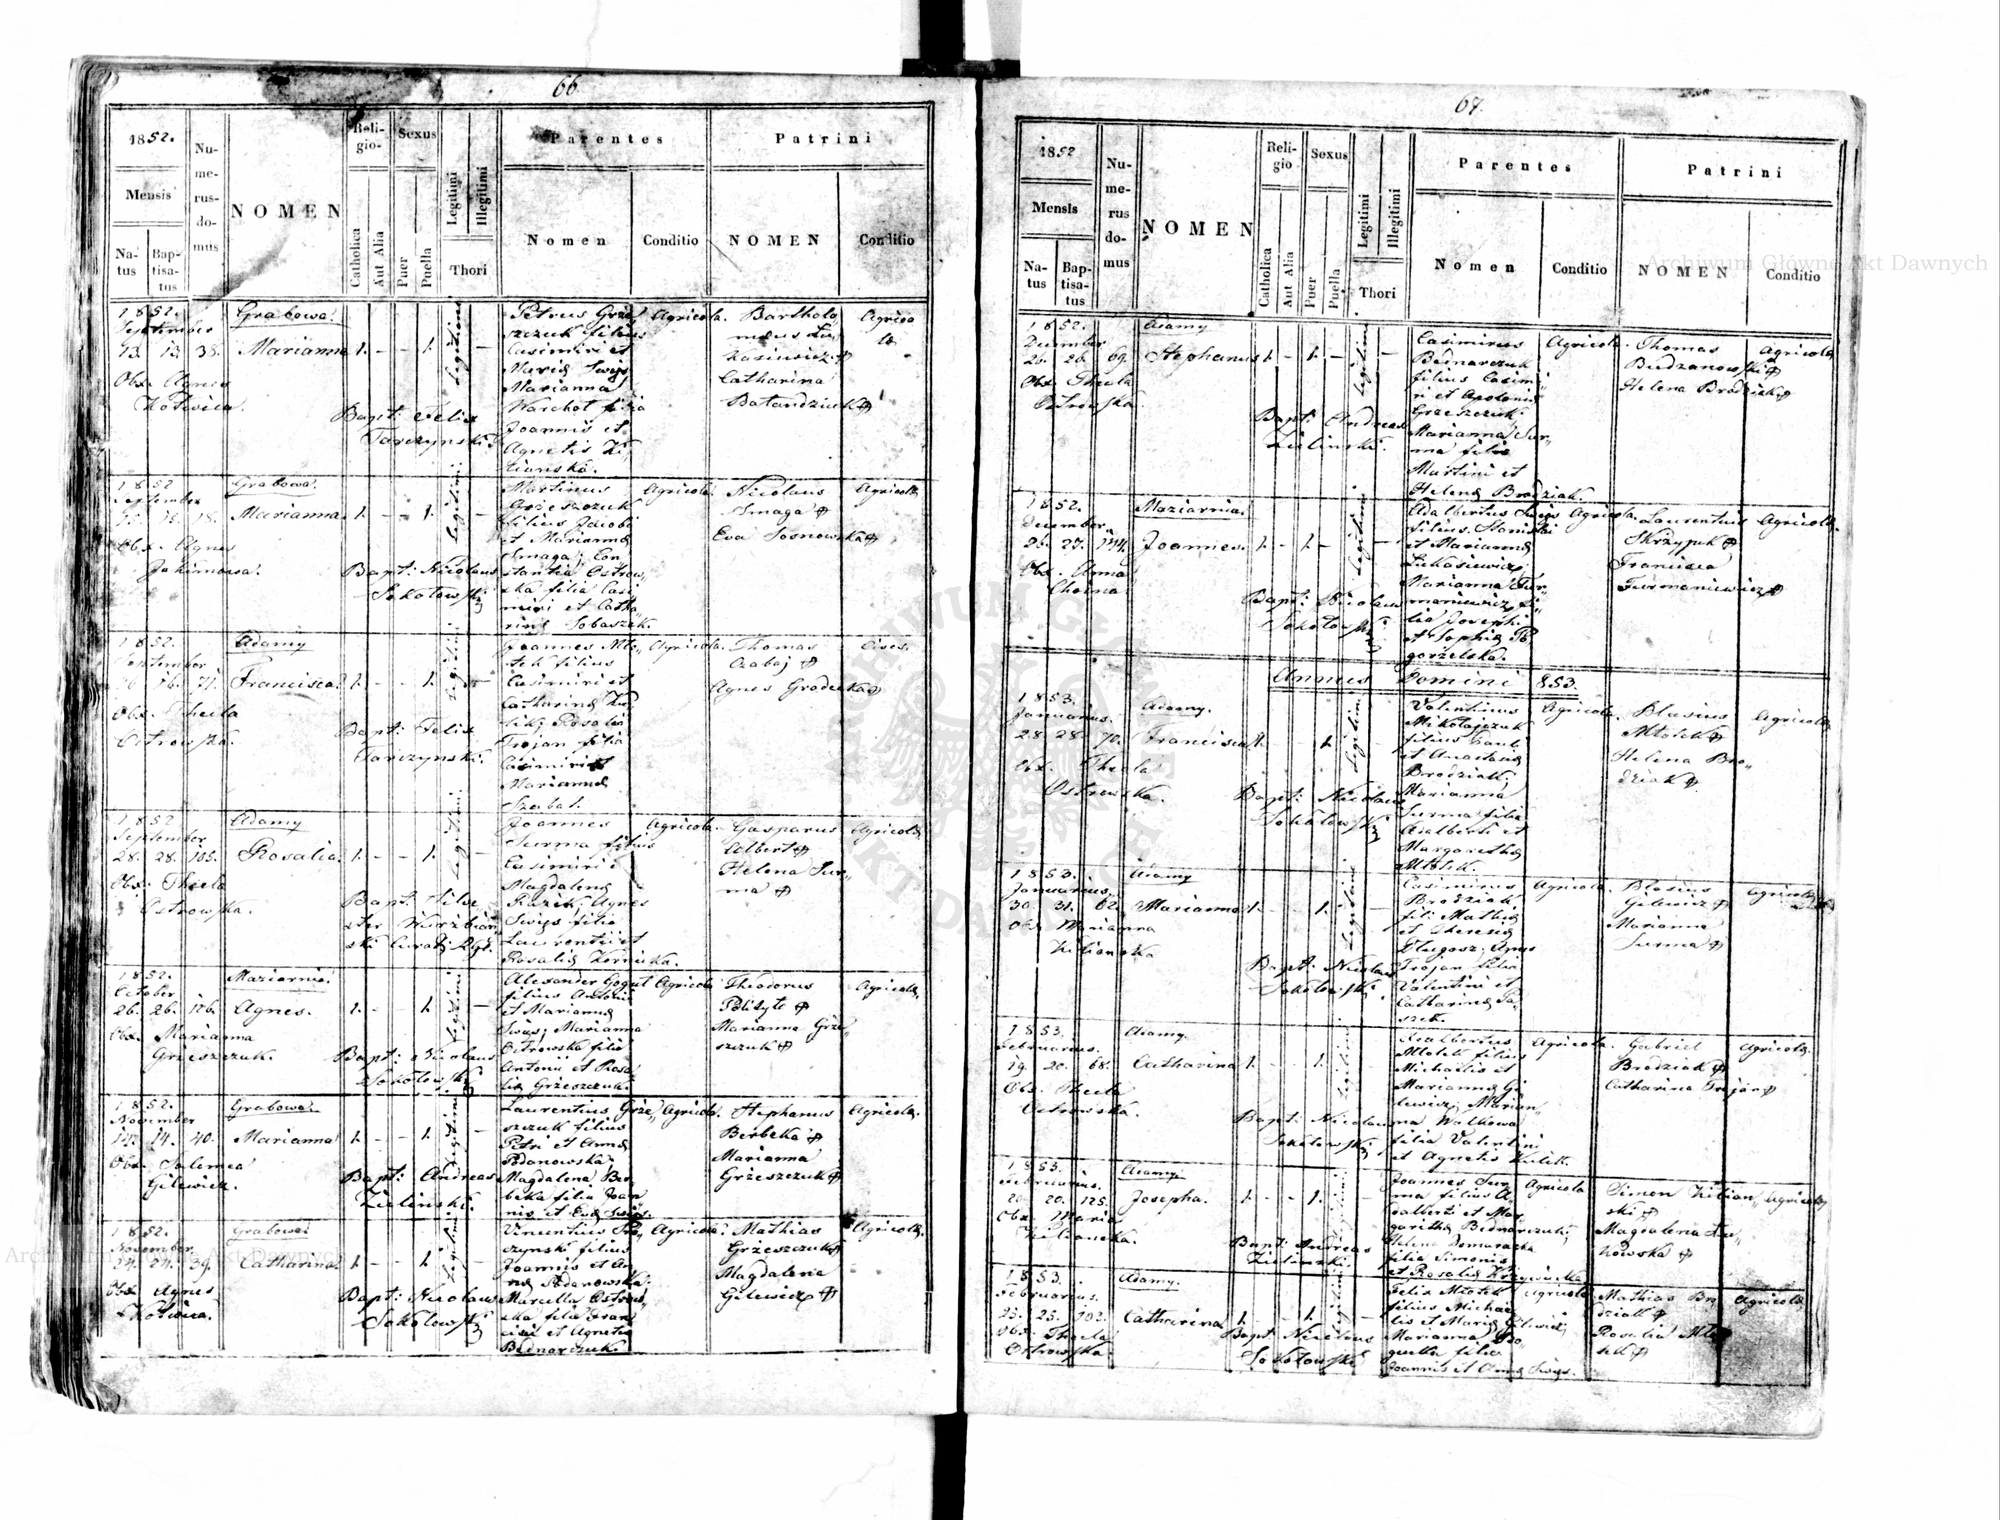 66.
1852.
Mensis
Na-
tus
Bap-
tisa-
tus
Nu-
me-
rus-
do-
mus
NOMEN
Reli-
gio-
Catholica
Aut Alia
Sexus
Puer
Puella
Legitimi
Illegitimi
Thori
Parentes
Nomen
Conditio
Patrini
NOMEN
Conditio
1852.
September
13. 13. 38.
Obs. Agnes
Kotwica.
Grabowa.
Marianna
1. - - 1. -
Legitimi
Bapt: Felix
Tarczynski.
Petrus Grze
szczuk filius
Casimiri et
Mariæ Swęs
Marianna
Warchoł filia
Joannis et
Agnetis Ki
liańska.
Agricola.
Bartholo
meus Łu
kasiewicz
Catharina
Bałandziuk
Agrico
la
1852
September
15. 16. 18.
Obs. Agnes
Grabowa.
Marianna.
1. - - 1. -
Legitimi
Bapt: Nicolaus
Sokołowski
Martinus
Grzeszczuk
filius Jacobi
et Mariannæ
Smaga; Con
stantia Ostrow,,
ska filia Casi
miri et Catha
rinæ Sobaszek.
Agricola.
Nicolaus
Smaga
Eva Sosnowska
Agricola
1852.
September
16. 16. 71.
Obs. Thecla
Ostrowska.
Adamy
Francisca.
1. - - 1. -
Legitimi
Bapt: Felix
Tarczynski.
Joannes Mło,,
tek filius
Casimiri et
Catharinæ
Rosalia
Trojan filia
Casimiri et
Mariannæ
Szabat.
Agricola.
Thomas
Czabaj
Agnes Grodecka
Cives.
1852
September
28. 28. 105.
Obs. Thecla
Ostrowska.
Adamy
Rosalia.
1. - - 1. -
Legitimi
Joannes
Surma filius
Casimiri et
Magdalenæ
Agnes
Swięs filia
Laurentii et
Rosaliæ Kornicka.
Agricola.
Gasparus
Albert
Helena Sur,,
ma
Agricola
1852.
October
26. 26. 126.
Obs. Marianna
Grzeszczuk.
Maziarnia.
Agnes.
1. - - 1. -
Legitimi
Bapt: Nicolaus
Sokołowski
Alexander Gogut
filius Antonii
et Mariannæ
Swięs; Marianna
Ostrowska filia
Antonii et Rosa
liæ Grzeszczuk.
Agricola
Theodorus
Politylo
Marianna Grze
szczuk
Agricola.
1852.
November
14. 40.
Obs. Salomea
Gilewicz.
Grabowa.
Marianna
1. - - 1. -
Legitimi
Bapt: Andreas
Zieliński.
Laurentius Grze,,
szczuk filius
Petri et Annæ
Podanowska;
Magdalena Ber
beka filia Joan
nis et Evæ Swięs.
Agricola.
Stephanus
Berbeka
Marianna
Grzeszczuk
Agricola.
1852.
November
24. 24. 39.
Obs. Agnes
Kotwica.
Grabowa.
Catharina
1. - - 1.
Legitimi
Bapt: Nicolaus
Sokołowski
Vincentius
filius
Joannis et An
næ Podanowska:
Marcella Ostrow,,
ska filia Fran
cisci et Agnetis
Bednarczuk
Agricola.
Mathias
Grzeszczuk
Magdalena
Gilewicz
Agricola.
67.
1852
Mensis
Na-
tus
Bap-
tisa-
tus
Nu-
me-
rus
do-
mus
NOMEN
Reli-
gio
Catholica
Aut Alia
Sexus
Puer
Puella
Legitimi
Illegitimi
Thori
Parentes
Nomen
Conditio
Patrini
NOMEN
Conditio
1852.
December
26. 26. 69.
Obs. Thecla
Ostrowska.
Adamy
Stephanus
1. - 1. - -
Legitimi
Bapt: Andreas
Zieliński.
Casimirus
Bednarczuk
filius Casimi
ri et Apoloniæ
Grzeszczuk.
Marianna Sur,,
ma filia
Martini et
Helenæ Brodziak.
Agricola.
Thomas
Budzanowski
Helena Brodziak
Agricola
1852.
December
26. 27. 144.
Obs. Anna
Choina
Maziarnia.
Joannes.
1. - 1. - -
Legitimi
Bapt: Nicolaus
Sokołowski
Adalbertus Swięs
filius Stanislai
et Mariannæ
Łukasiewicz;
Marianna Fur,,
maniewicz fi,,
lia Josephi
et Sophiæ Po
gorzelska.
Agricola.
Laurentius
Skrzypek
Francisca
Furmaniewicz
Agricola.
Annus Domini 1853.
1853.
Januarius.
28. 28. 70.
Obs. Thecla
Ostrowska.
Adamy.
Francisca
1. - - 1. -
Legitimi
Bapt: Nicolaus
Sokołowski
Valentinus
Mikołajczuk
filius Pauli
et Anastasiæ
Brodziak.
Marianna
Surma filia
Adalberti et
Margarethæ
Młotek.
Agricola.
Blasius
Młotek
Helena Bro,,
dziak
Agricola
1853.
Januarius.
30. 31. 62.
Obs. Marianna
Kilianska
Adamy
Marianna
1. - - 1. -
Legitimi
Bapt: Nicolaus
Sokołowski
Casimirus
Brodziak
fil: Mathiæ
et Theresiæ
Długosz; Agnes
Trojan filia
Valentini et
Catharinæ Pa,,
szek.
Agricola.
Blasius
Gilewicz
Marianna
Surma
Agricola
1853.
Februarius.
19. 20. 68.
Obs. Thecla
Ostrowska.
Adamy.
Catharina
1. - - 1.
Legitimi
Bapt: Nicolaus
Sokołowski
Adalbertus
Młotek filius
Michaelis et
Mariannæ Gi
lewicz; Marian,,
na Walkowa
filia Valentini
et Agnetis Kulik.
Agricola.
Gabriel
Brodziak
Catharina Trojan
Agricola.
1853.
Februarius.
20. 20. 125.
Obs. Maria
Kilianska.
Adamy
Josepha.
1. - - 1.
Legitimi
Bapt: Andreas
Zieliński.
Joannes Sur,,
ma filius A,,
dalberti et Mar,,
garithæ Bednarczuk;
Helena Domaradzka
filia Simonis
et Rosaliæ Krzywinska
Agricola
Simon Kilian,,
ski
Magdalena
kowska
Agricola
1853.
Februarius.
25. 25. 102.
Obs. Thecla
Ostrowska.
Adamy.
Catharina
1. - - 1.
Legitimi
Bapt: Nicolaus
Sokołowski
Felix Młotek
filius Michae
lis et Mariæ Gilewicz;
Marianna
filia
Joannis et Annæ Swięs.
Agricola
Mathias Bro
dziak
Rosalia Mło
tek
Agricola
Archiwum Główne Akt Dawnych
Archiwum Główne Akt Dawnych
ARCHIWUM GŁÓWNE AKT DAWNYCH